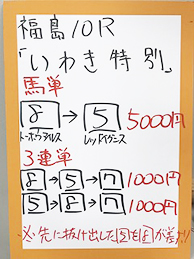 福島10R
「いわき特別」
馬単
8→5 5000円
トーホウアルテミス レッドイグニス
3連単
8→5→7 1000円
5→8→7 1000円
※先に抜け出した5を8が差す!!